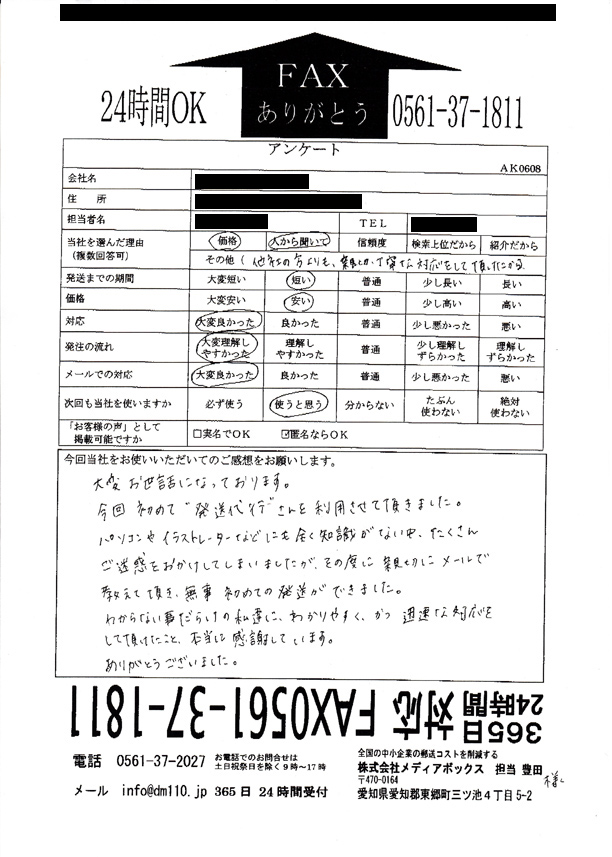 FAX
ありがとう
24時間OK
0561-37-1811
アンケート
AK0608
会社名
住　所
担当者名 TEL
当社を選んだ理由（複数回答可） 価格 人から聞いて 信頼度 検索上位だから 紹介だから
その他（他社の方よりも、親身かつ丁寧な対応をして頂けたから
発送までの期間 大変短い 短い 普通 少し長い 長い
価格 大変安い 安い 普通 少し高い 高い
対応 大変良かった 良かった 普通 少し悪かった 悪い
発注の流れ 大変理解しやすかった 理解しやすかった 普通 少し理解しずらかった 理解しずらかった
メールでの対応 大変良かった 良かった 普通 少し悪かった 悪い
次回も当社を使いますか 必ず使う 使うと思う 分からない たぶん使わない 絶対使わない
「お客様の声」として掲載可能ですか □実名でOK ☑匿名ならOK
今回当社をお使いいただいてのご感想をお願いします。
大変お世話になっております。
今回初めて"発送代行"さんを利用させて頂きました。
パソコンやイラストレーターなどにも全く知識がない中、たくさん
ご迷惑をおかけしてしまいましたが、その度に親切にメールで
教えて頂き、無事初めての発送ができました。
わからない事だらけの私達に、わかりやすく、かつ迅速な対応を
して頂けたこと、本当に感謝しています。
ありがとうございました。
365日24時間対応 FAX0561-37-1811
電話 0561-37-2027 お電話でのお問合せは土日祝祭日を除く9時〜17時
メール info@dm110.jp 365日24時間受付
全国の中小企業の郵送コストを削減する
株式会社メディアボックス 担当 豊田 様
〒470-0164
愛知県愛知郡東郷町三ツ池4丁目5-2